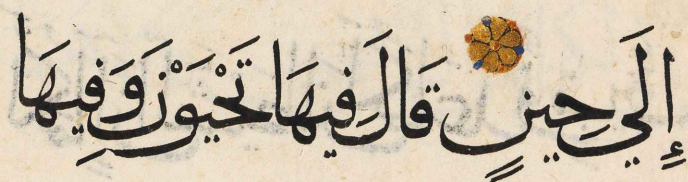 إِلَى حِينٍ قَالَ فِيهَا تَحْيَوْنَ وَفِيهَا